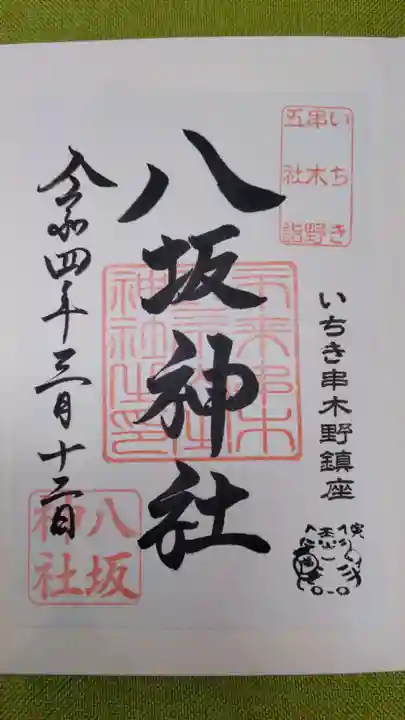 いちき
串木野
五社詣
いちき串木野鎮座
八坂神社
令和四年三月十二日
八坂
神社